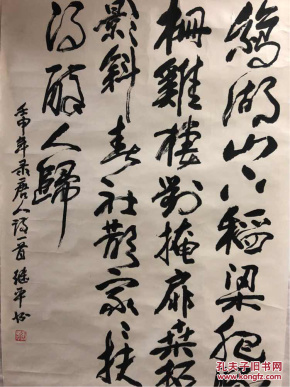 鵝湖山下稻粱肥
柵雞棲對掩扉桑柘
影斜春社散家々扶
得醉人歸
壬申年录唐人诗一首 继平书
孔夫子旧书网